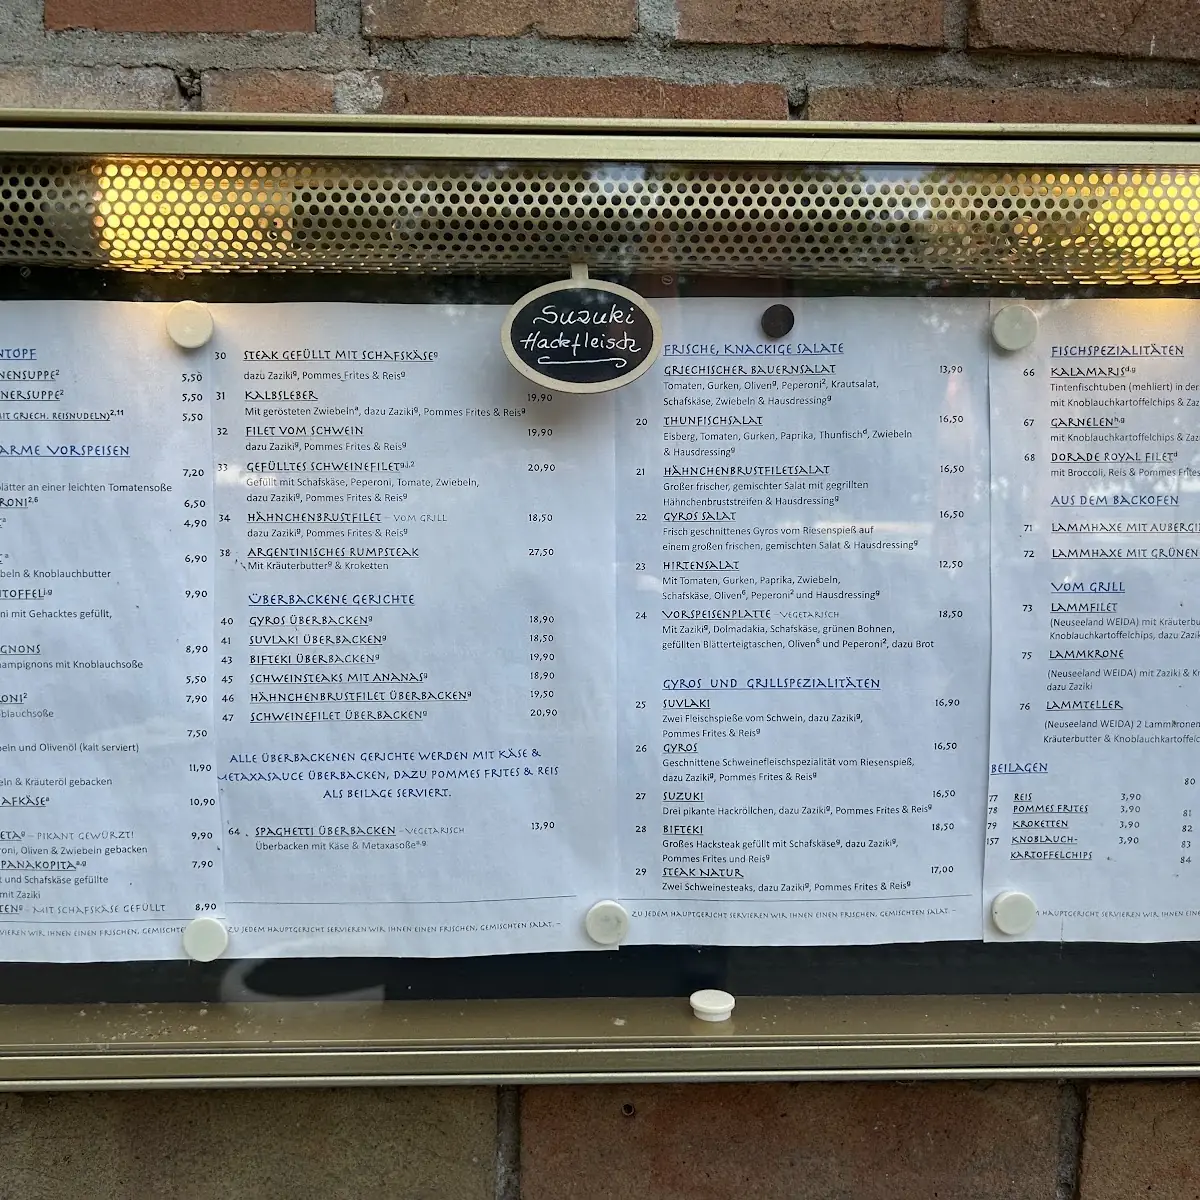 Suzuki
Hackfleisch
NTOPF
NENSUPPE² 5,50
NERSUPPE² 5,50
MIT GRIECH. REISNUDELN)²,¹¹ 5,50
ARME VORSPEISEN
7,20
lätter an einer leichten Tomatensoße
RONI²,⁶ 6,50
4,90
6,90
beln & Knoblauchbutter
TOFFEL 9,90
ni mit Gehacktes gefüllt,
GNONS 8,90
ampignons mit Knoblauchsoße
5,50
RONI² 7,90
blauchsoße
7,50
beln und Olivenöl (kalt serviert)
11,90
eln & Kräuteröl gebacken
AFKÄSE 10,90
ETA – PIKANT GEWÜRZT! 9,90
roni, Oliven & Zwiebeln gebacken
PANAKOPITA 7,90
t und Schafskäse gefüllte
mit Zaziki
TEN – MIT SCHAFSKÄSE GEFÜLLT 8,90
VIEREN WIR IHNEN EINEN FRISCHEN, GEMISCHTE
30 STEAK GEFÜLLT MIT SCHAFSKÄSEᵍ
dazu Zazikiᵍ, Pommes Frites & Reisᵍ
31 KALBSLEBER 19,90
Mit gerösteten Zwiebelnᵃ, dazu Zazikiᵍ, Pommes Frites & Reisᵍ
32 FILET VOM SCHWEIN 19,90
dazu Zazikiᵍ, Pommes Frites & Reisᵍ
33 GEFÜLLTES SCHWEINEFILETᵍ,ʲ,² 20,90
Gefüllt mit Schafskäse, Peperoni, Tomate, Zwiebeln,
dazu Zazikiᵍ, Pommes Frites & Reisᵍ
34 HÄHNCHENBRUSTFILET – VOM GRILL 18,50
dazu Zazikiᵍ, Pommes Frites & Reisᵍ
38 ARGENTINISCHES RUMPSTEAK 27,50
Mit Kräuterbutterᵍ & Kroketten
ÜBERBACKENE GERICHTE
40 GYROS ÜBERBACKENᵍ 18,90
41 SUVLAKI ÜBERBACKENᵍ 18,50
43 BIFTEKI ÜBERBACKENᵍ 19,90
45 SCHWEINSTEAKS MIT ANANASᵍ 18,90
46 HÄHNCHENBRUSTFILET ÜBERBACKENᵍ 19,50
47 SCHWEINEFILET ÜBERBACKENᵍ 20,90
ALLE ÜBERBACKENEN GERICHTE WERDEN MIT KÄSE &
METAXASAUCE ÜBERBACKEN, DAZU POMMES FRITES & REIS
ALS BEILAGE SERVIERT.
64 SPAGHETTI ÜBERBACKEN – VEGETARISCH 13,90
Überbacken mit Käse & Metaxasoßeᵃ,ᵍ
ZU JEDEM HAUPTGERICHT SERVIEREN WIR IHNEN EINEN FRISCHEN, GEMISCHTEN SALAT. –
FRISCHE, KNACKIGE SALATE
GRIECHISCHER BAUERNSALAT 13,90
Tomaten, Gurken, Olivenᵍ, Peperoni², Krautsalat,
Schafskäse, Zwiebeln & Hausdressingᵍ
20 THUNFISCHSALAT 16,50
Eisberg, Tomaten, Gurken, Paprika, Thunfischᵈ, Zwiebeln
& Hausdressingᵍ
21 HÄHNCHENBRUSTFILETSALAT 16,50
Großer frischer, gemischter Salat mit gegrillten
Hähnchenbruststreifen & Hausdressingᵍ
22 GYROS SALAT 16,50
Frisch geschnittenes Gyros vom Riesenspieß auf
einem großen frischen, gemischten Salat & Hausdressingᵍ
23 HIRTENSALAT 12,50
Mit Tomaten, Gurken, Paprika, Zwiebeln,
Schafskäse, Oliven⁶, Peperoni² und Hausdressingᵍ
24 VORSPEISENPLATTE – VEGETARISCH 18,50
Mit Zazikiᵍ, Dolmadakia, Schafskäse, grünen Bohnen,
gefüllten Blätterteigtaschen, Oliven⁶ und Peperoni², dazu Brot
GYROS UND GRILLSPEZIALITÄTEN
25 SUVLAKI 16,90
Zwei Fleischspieße vom Schwein, dazu Zazikiᵍ,
Pommes Frites & Reisᵍ
26 GYROS 16,50
Geschnittene Schweinefleischspezialität vom Riesenspieß,
dazu Zazikiᵍ, Pommes Frites & Reisᵍ
27 SUZUKI 16,50
Drei pikante Hackröllchen, dazu Zazikiᵍ, Pommes Frites & Reisᵍ
28 BIFTEKI 18,50
Großes Hacksteak gefüllt mit Schafskäseᵍ, dazu Zazikiᵍ,
Pommes Frites und Reisᵍ
29 STEAK NATUR 17,00
Zwei Schweinesteaks, dazu Zazikiᵍ, Pommes Frites & Reisᵍ
ZU JEDEM HAUPTGERICHT SERVIEREN WIR IHNEN EINEN FRISCHEN, GEMISCHTEN SALAT. –
FISCHSPEZIALITÄTEN
66 KALAMARISᵈ,ᵍ
Tintenfischtuben (mehliert) in der
mit Knoblauchkartoffelchips & Zaz
67 GARNELENʰ,ᵍ
mit Knoblauchkartoffelchips & Zaz
68 DORADE ROYAL FILETᵈ
mit Broccoli, Reis & Pommes Frites
AUS DEM BACKOFEN
71 LAMMHAXE MIT AUBERGI
72 LAMMHAXE MIT GRÜNEN
VOM GRILL
73 LAMMFILET
(Neuseeland WEIDA) mit Kräuterbu
Knoblauchkartoffelchips, dazu Zazik
75 LAMMKRONE
(Neuseeland WEIDA) mit Zaziki & Kr
dazu Zaziki
76 LAMMTELLER
(Neuseeland WEIDA) 2 Lammkronen
Kräuterbutter & Knoblauchkartoffelc
BEILAGEN
80
77 REIS 3,90
78 POMMES FRITES 3,90 81
79 KROKETTEN 3,90 82
157 KNOBLAUCH- 3,90 83
KARTOFFELCHIPS 84
M HAUPTGERICHT SERVIEREN WIR IHNEN EINEN